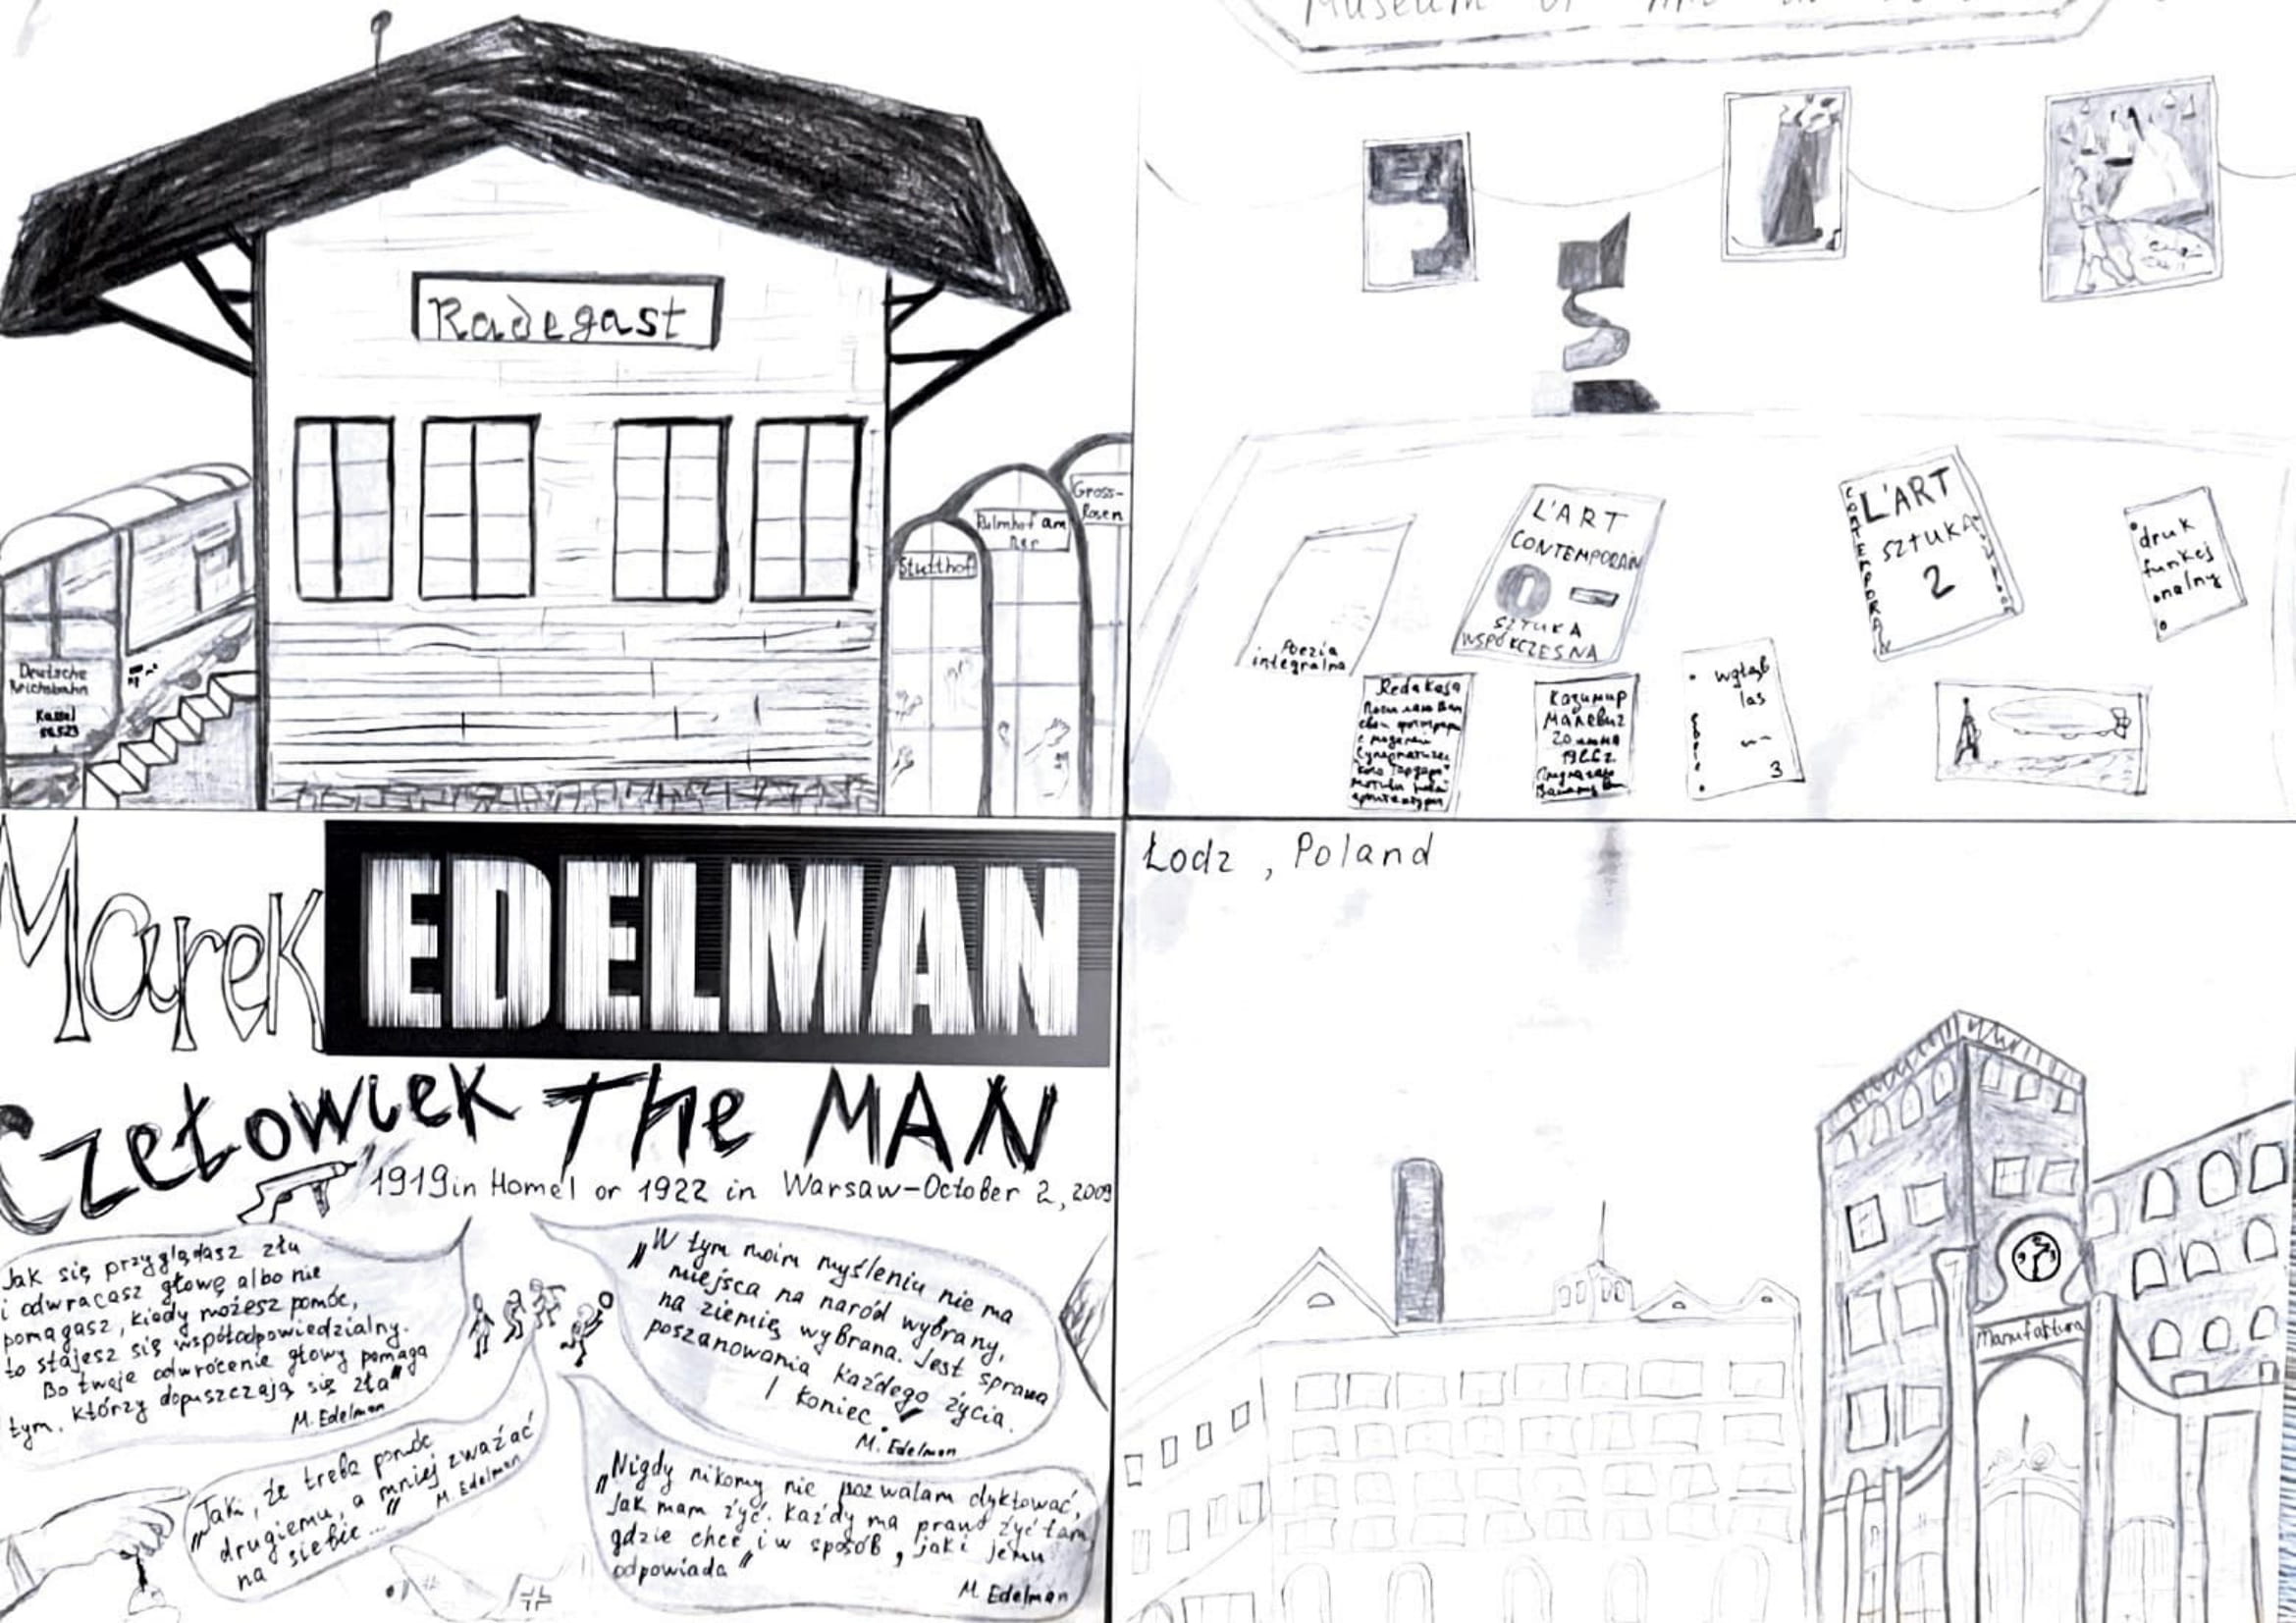 Radegast
Stutthof
Kulmhof am
Ner
Gross-
Rosen
Deutsche
Reichsbahn
Kassel
Museum of
Poezia
integralna
L'ART
CONTEMPORAIN
SZTUKA
WSPÓŁCZESNA
L'ART
SZTUKA
2
druk
funkcj
onalny
Redakcja
Казимир
Малевич
1926 г.
wgłąb
las
3
Marek
EDELMAN
Człowiek The MAN
1919 in Homel or 1922 in Warsaw-October 2, 2009
Jak się przyglądasz złu
i odwracasz głowę albo nie
pomagasz, kiedy możesz pomóc,
to stajesz się współodpowiedzialny.
Bo twoje odwrócenie głowy pomaga
tym, którzy dopuszczają się zła"
M. Edelman
„W tym moim myśleniu nie ma
miejsca na naród wybrany,
na ziemię wybrana. Jest sprawa
poszanowania każdego życia.
I koniec.
M. Edelman
„Taki, że treba pomóc
drugiemu, a mniej zważać
na siebie..."
M. Edelman
„Nigdy nikomy nie pozwalam dyktować,
jak mam żyć. Każdy ma prawo żyć tam,
gdzie chce i w sposób, jaki jemu
odpowiada"
M. Edelman
Łodz, Poland
Manufaktura